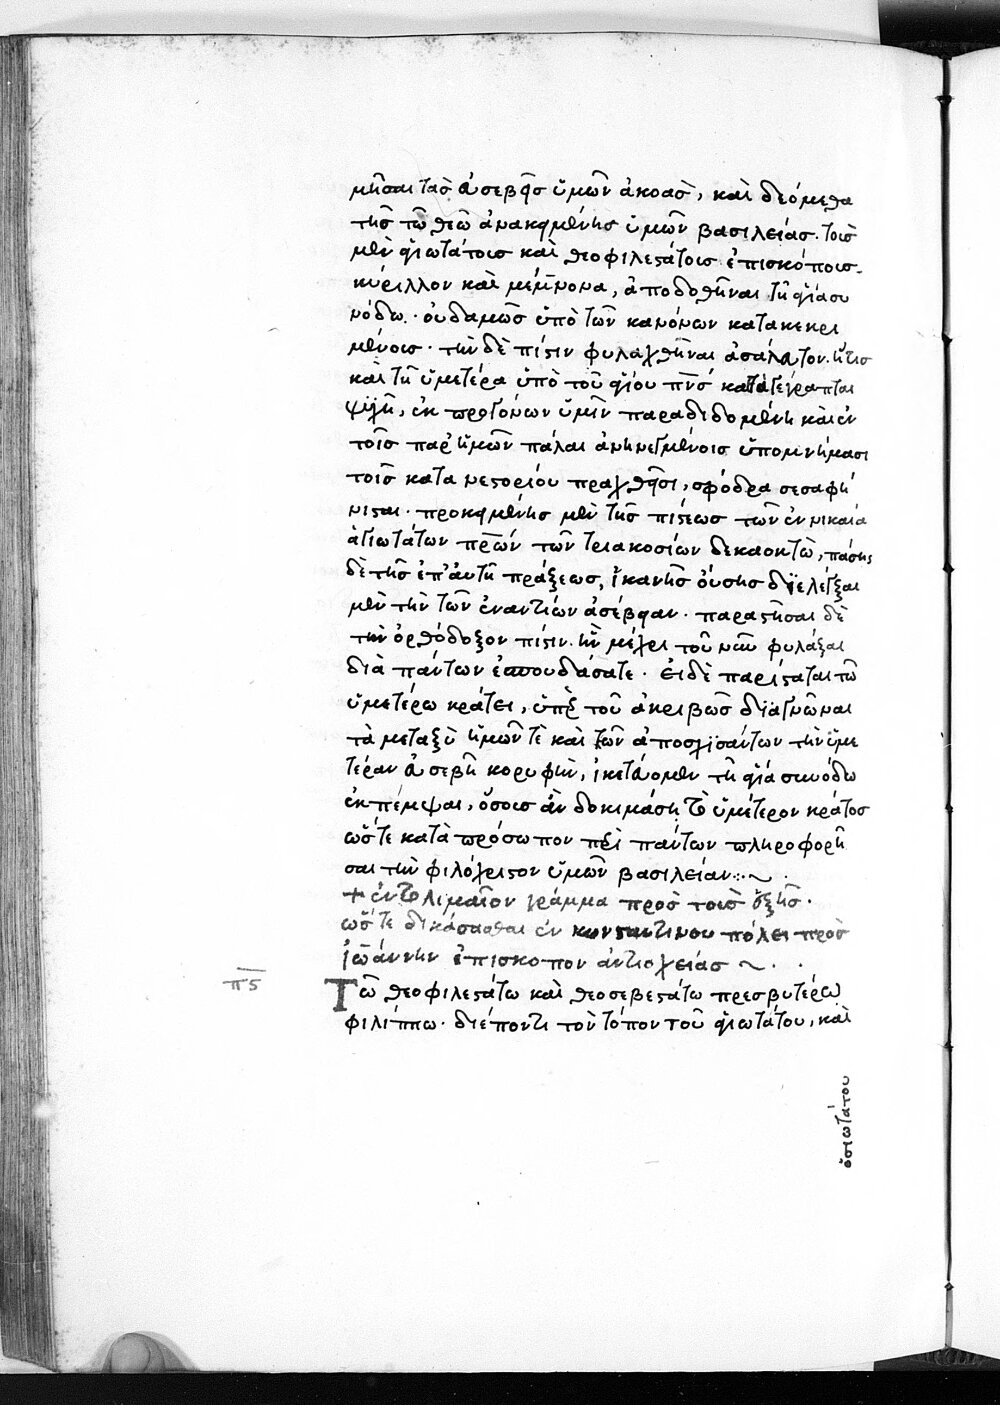 μῆσαι τὰς ἀσεβεῖς ὑμῶν ἀκοὰς, καὶ δεόμεθα
τῆς τῶ θεῶ ἀνακειμένης ὑμῶν βασιλείας. τοῖς
μὲν ἁγιωτάτοις καὶ θεοφιλεστάτοις ἐπισκόποις
κύριλλον καὶ μέμνονα, ἀποδοθῆναι τῆ ἁγία συ
νόδω. οὐδαμῶς ὑπὸ τῶν κανόνων κατακεκρι
μένοις. τὴν δὲ πίστιν φυλαχθῆναι ἀσάλευτον. ἥτις
καὶ τῆ ὑμετέρα ὑπὸ τοῦ ἁγίου πνς καταγέγραπται
ψυχῆ, ἐκ προγόνων ὑμῖν παραδιδομένη καὶ ἐν
τοῖς παρ' ἡμῶν πάλαι ἀνηνεγμένοις ὑπομνήμασι
τοῖς κατα νεστορίου πραχθεῖσι, σφόδρα σεσαφή
νισται. προκειμένης μὲν τῆς πίστεως τῶν ἐν νικαία
ἁγιωτάτων πρων τῶν τριακοσίων δεκαοκτὼ, πάσης
δὲ τῆς ἐπ' αὐτῆ πράξεως, ἱκανῆς οὔσης διελέγξαι
μὲν τὴν τῶν ἐναντίων ἀσέβειαν. παραστῆσαι δὲ
τὴν ὀρθόδοξον πίστιν. ἣν μέχρι τοῦ νῦν φυλάξαι
διὰ πάντων ἐσπουδάσατε. εἰ δὲ παρίσταται τῶ
ὑμετέρω κράτει, ὑπὲρ τοῦ ἀκριβῶς διαγνῶναι
τὰ μεταξὺ ἡμῶν τὲ καὶ τῶν ἀποσχισάντων τὴν ὑμε
τέραν εὐσεβῆ κορυφὴν, ἱκετεύομεν τῆ ἁγία συνόδω
ἐκπέμψαι, ὅσοις ἂν δοκιμάση τὸ ὑμέτερον κράτος
ὥστε κατὰ πρόσωπον περὶ πάντων πληροφορῆ
σαι τὴν φιλόχριστον ὑμῶν βασιλείαν
+ ἐντολιμαῖον γράμμα πρὸς τοὺς
ὥστε δικάσασθαι ἐν κωνσταντινου πόλει πρὸς
ἰωάννην ἐπίσκοπον ἀντιοχείας
πς
Τῶ θεοφιλεστάτω καὶ θεοσεβεστάτω πρεσβυτέρω
φιλίππω. διέποντι τὸν τόπον τοῦ ἁγιωτάτου, καὶ
ὁσιωτάτου